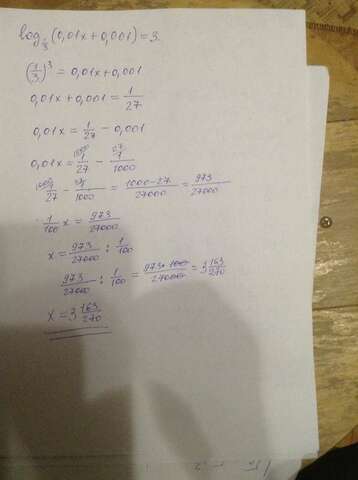 log_{1/3}(0,01x+0,001)=3
(1/3)^3 = 0,01x+0,001
0,01x+0,001 = 1/27
0,01x = 1/27 - 0,001
0,01x = 1/27 - 1/1000
1/27 - 1/1000 = 1000-27/27000 = 973/27000
1/100 x = 973/27000
x = 973/27000 : 1/100
973/27000 : 1/100 = 973·100/27000 = 3 163/270
x = 3 163/270